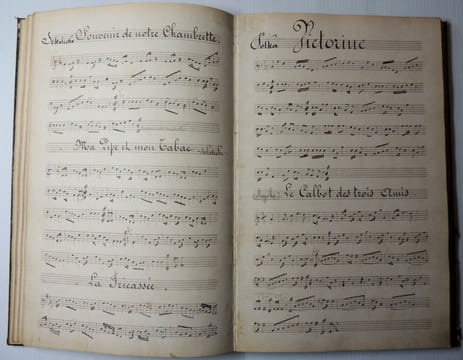 Schottische Souvenir de notre Chambrette.
Ma Pipe et mon Tabac
La Fricassée.
Polka Victorine
Le Calbot des trois Amis.